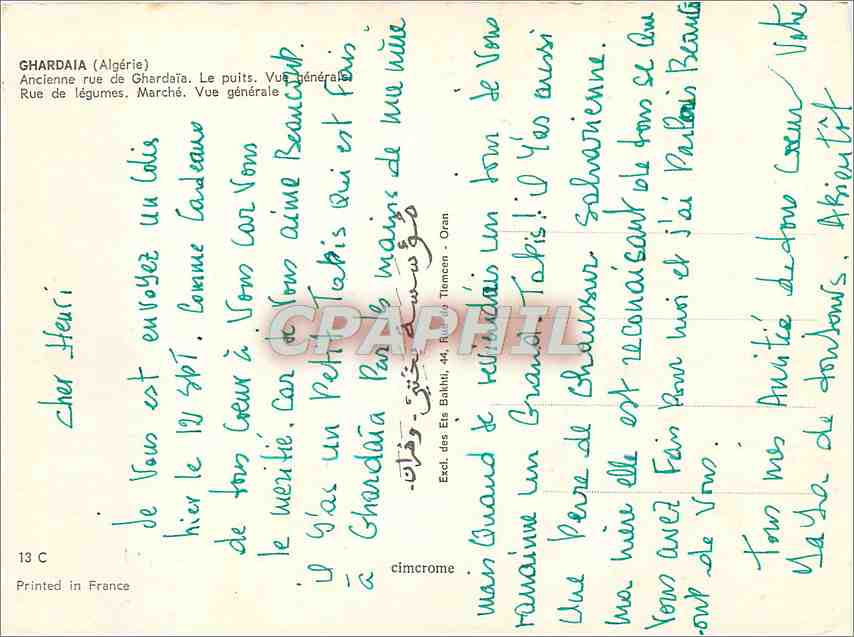 GHARDAIA (Algérie)
Ancienne rue de Ghardaïa. Le puits. Vue générale.
Rue de légumes. Marché. Vue générale
Cher Henri
Je Vous est envoyez un Colis
hier le 12 SPT. Comme Cardeaux
de tous Coeur à Vous Car Vous
le meritié. Car Je Vous aime Beaucoup.
il Y'as un Petit Tapis Qui est Fais
à Ghardaïa Par les mains de ma mère
mais Quand Je reviendrais un Jour Je Vous
ramainne un Grand. Tapis! il Y'as aussi
Une Perre de Chaussur Saharienne.
ma mère elle est reconaisant de tous se Que
Vous avez Fais Pour moi et j'ai Parlais Beaucoup
ont de Vous.
Tous mes Amitié de tous Coeur Votre
de toujours. Abientôt
مؤسسة بختي - وهران -
Excl. des Ets Bakhti, 44, Rue de Tlemcen - Oran
13 C
Printed in France
cimcrome
CPAPHIL